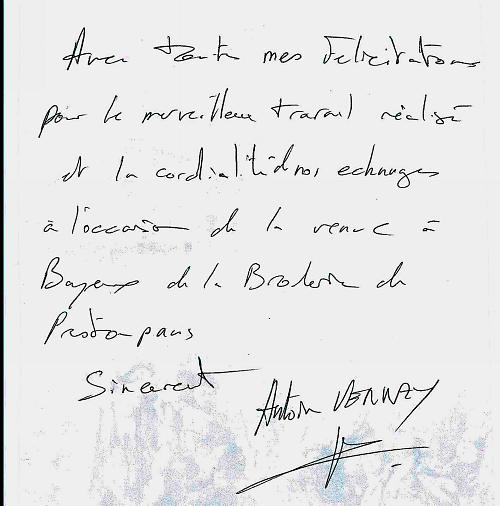 Avec toute mes Félicitations
pour le merveilleux travail réalisé
et la cordialité d nos echanges
à l'occasion de la venue à
Bayeux de la Broderie de
Prestonpans
Sincèrement
Antoine VERNEY